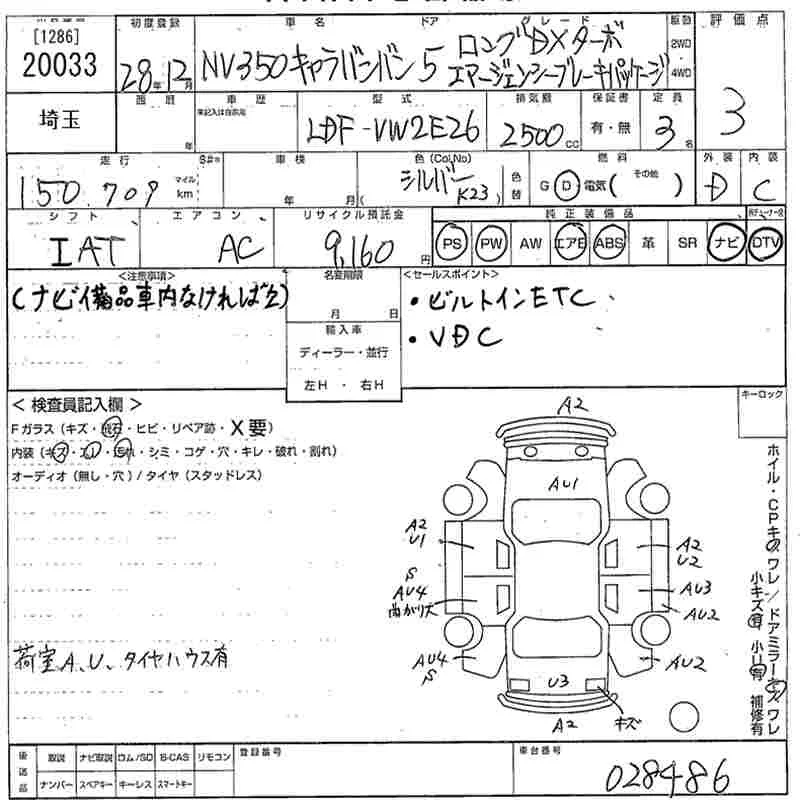 [1286]
20033
初度登録
28年12月
車名 ドア グレード
NV350キャラバンバン 5 ロングDXターボ
エマージェンシーブレーキパッケージ
駆動
2WD
4WD
評価点
3
埼玉
西暦
年
車歴
型式
LDF-VW2E26
排気量
2500cc
保証書
有・無
定員
3名
走行 S#※
150,709 マイル km
車検
年 月
色(Col,No)
シルバー
( K23 )
色替
燃料
G D 電気 ( その他 )
外装
D
内装
C
シフト
IAT
エアコン
AC
リサイクル預託金
9,160円
純正装備品
PS PW AW エアB ABS 革 SR ナビ DTV
<注意事項>
(ナビ備品車内なければ欠)
名変期限
月 日
輸入車
ディーラー・並行
左H・右H
<セールスポイント>
・ビルトインETC
・VDC
キーロック
<検査員記入欄>
Fガラス (キズ・飛石・ヒビ・リペア跡・X要)
内装 (キズ・スレ・汚れ・シミ・コゲ・穴・キレ・破れ・割れ)
オーディオ (無し・穴) / タイヤ (スタッドレス)
荷室A、U、タイヤハウス有
A2
AU1
A2
U1
A2
U2
S
AU4
曲がり大
AU3
AU2
AU4
S
AU2
U3
キズ
A2
ホイル・CPキズワレ/ドアミラーキズワレ
小キズ有 小U有 補修有
後送品
取説 ナビ取説 ロム/SD B-CAS リモコン
ナンバー スペアキー キーレス スマートキー
登録番号
車台番号
028486